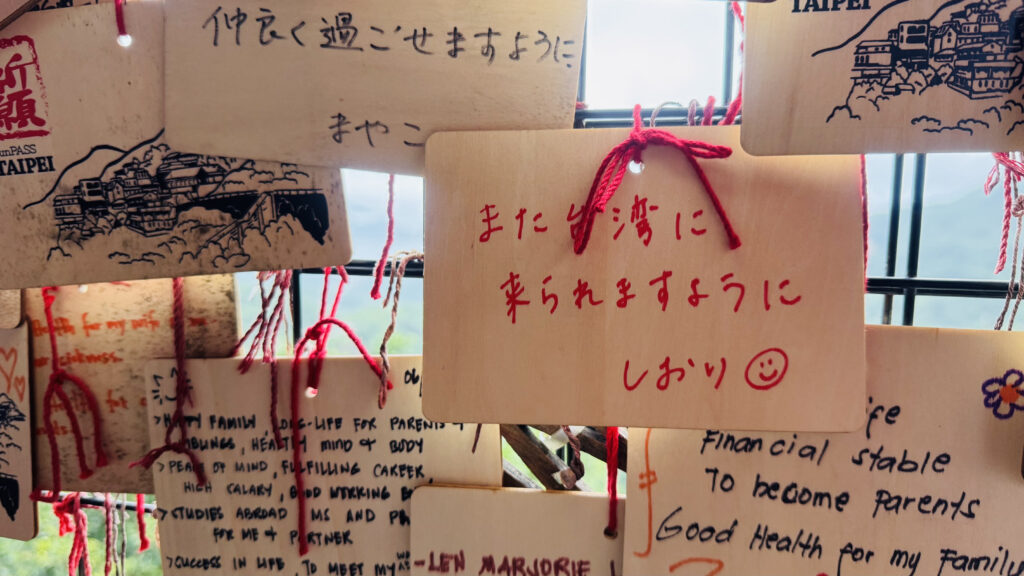 仲良く過ごせますように
まやこ
TAIPEI
祈願
FunPASS
TAIPEI
また台湾に
来られますように
しおり
Health for my wife
HAPPY FAMILY, LONG-LIFE FOR PARENTS &
SIBLINGS, HEALTHY MIND & BODY
PEACE OF MIND, FULFILLING CAREER,
HIGH CALARY, GOOD WORKING
STUDIES ABROAD MS AND
FOR ME & PARTNER
SUCCESS IN LIFE, TO MEET MY
-LEN MARJORIE
Financial stable
To become parents
Good Health for my Family